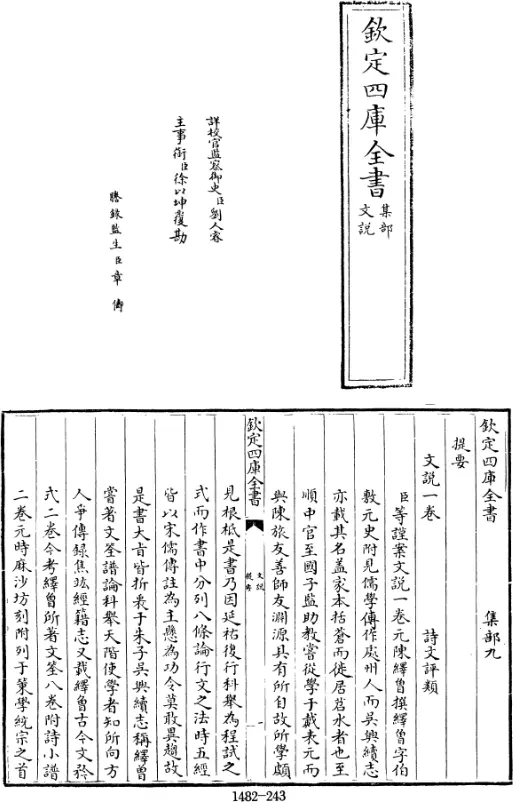 欽定四庫全書
集部
文説
詳校官監察御史臣劉人睿
主事銜臣徐以坤覆勘
謄錄監生臣章儔
欽定四庫全書
集部九
提要
文説一卷
詩文評類
臣等謹案文説一卷元陳繹曾撰繹曾字伯
敷元史附見儒學傳作處州人而吳興續志
亦載其名葢家本括蒼而徙居苕水者也至
順中官至國子監助教嘗從學于戴表元而
與陳旅友善師友淵源具有所自故所學頗
欽定四庫全書
文説
提要
一
見根柢是書乃因延祐復行科舉為程試之
式而作書中分列八條論行文之法時五經
皆以宋儒傳註為主懸為功令莫敢異趨故
是書大㫖皆折衷于朱子吳興續志稱繹曾
嘗著文筌譜論科舉天階使學者知所向方
人爭傳録焦竑經籍志又載繹曾古今文矜
式二卷今考繹曾所著文筌八卷附詩小譜
二卷元時麻沙坊刻附列于策學統宗之首
1482-243